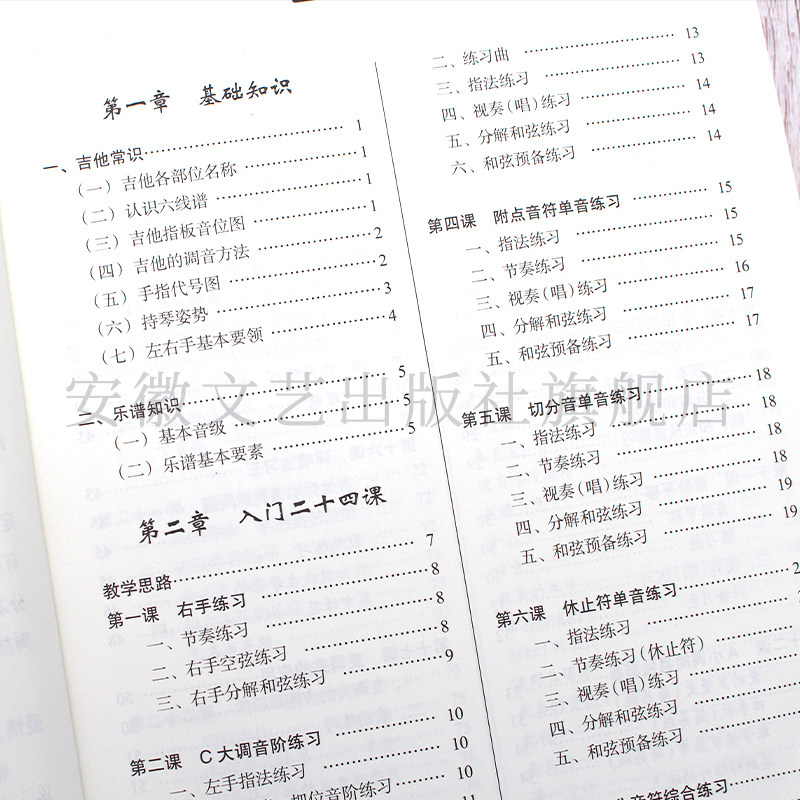 第一章 基础知识
一、吉他常识 1
（一）吉他各部位名称 1
（二）认识六线谱 1
（三）吉他指板音位图 1
（四）吉他的调音方法 2
（五）手指代号图 2
（六）持琴姿势 3
（七）左右手基本要领 4
二、乐谱知识 5
（一）基本音级 5
（二）乐谱基本要素 5
第二章 入门二十四课
教学思路 7
第一课 右手练习 8
一、节奏练习 8
二、右手空弦练习 8
三、右手分解和弦练习 9
第二课 C大调音阶练习 10
一、左手指法练习 10
把位音阶练习 10
11
二、练习曲 13
三、指法练习 13
四、视奏（唱）练习 14
五、分解和弦练习 14
六、和弦预备练习 14
第四课 附点音符单音练习 15
一、指法练习 15
二、节奏练习 15
三、视奏（唱）练习 16
四、分解和弦练习 17
五、和弦预备练习 17
第五课 切分音单音练习 18
一、指法练习 18
二、节奏练习 18
三、视奏（唱）练习 18
四、分解和弦练习 19
五、和弦预备练习 19
第六课 休止符单音练习
一、指法练习
二、节奏练习（休止符）
三、视奏（唱）练习
四、分解和弦练习
五、和弦预备练习
音符综合练习
安徽文艺出版社旗舰店